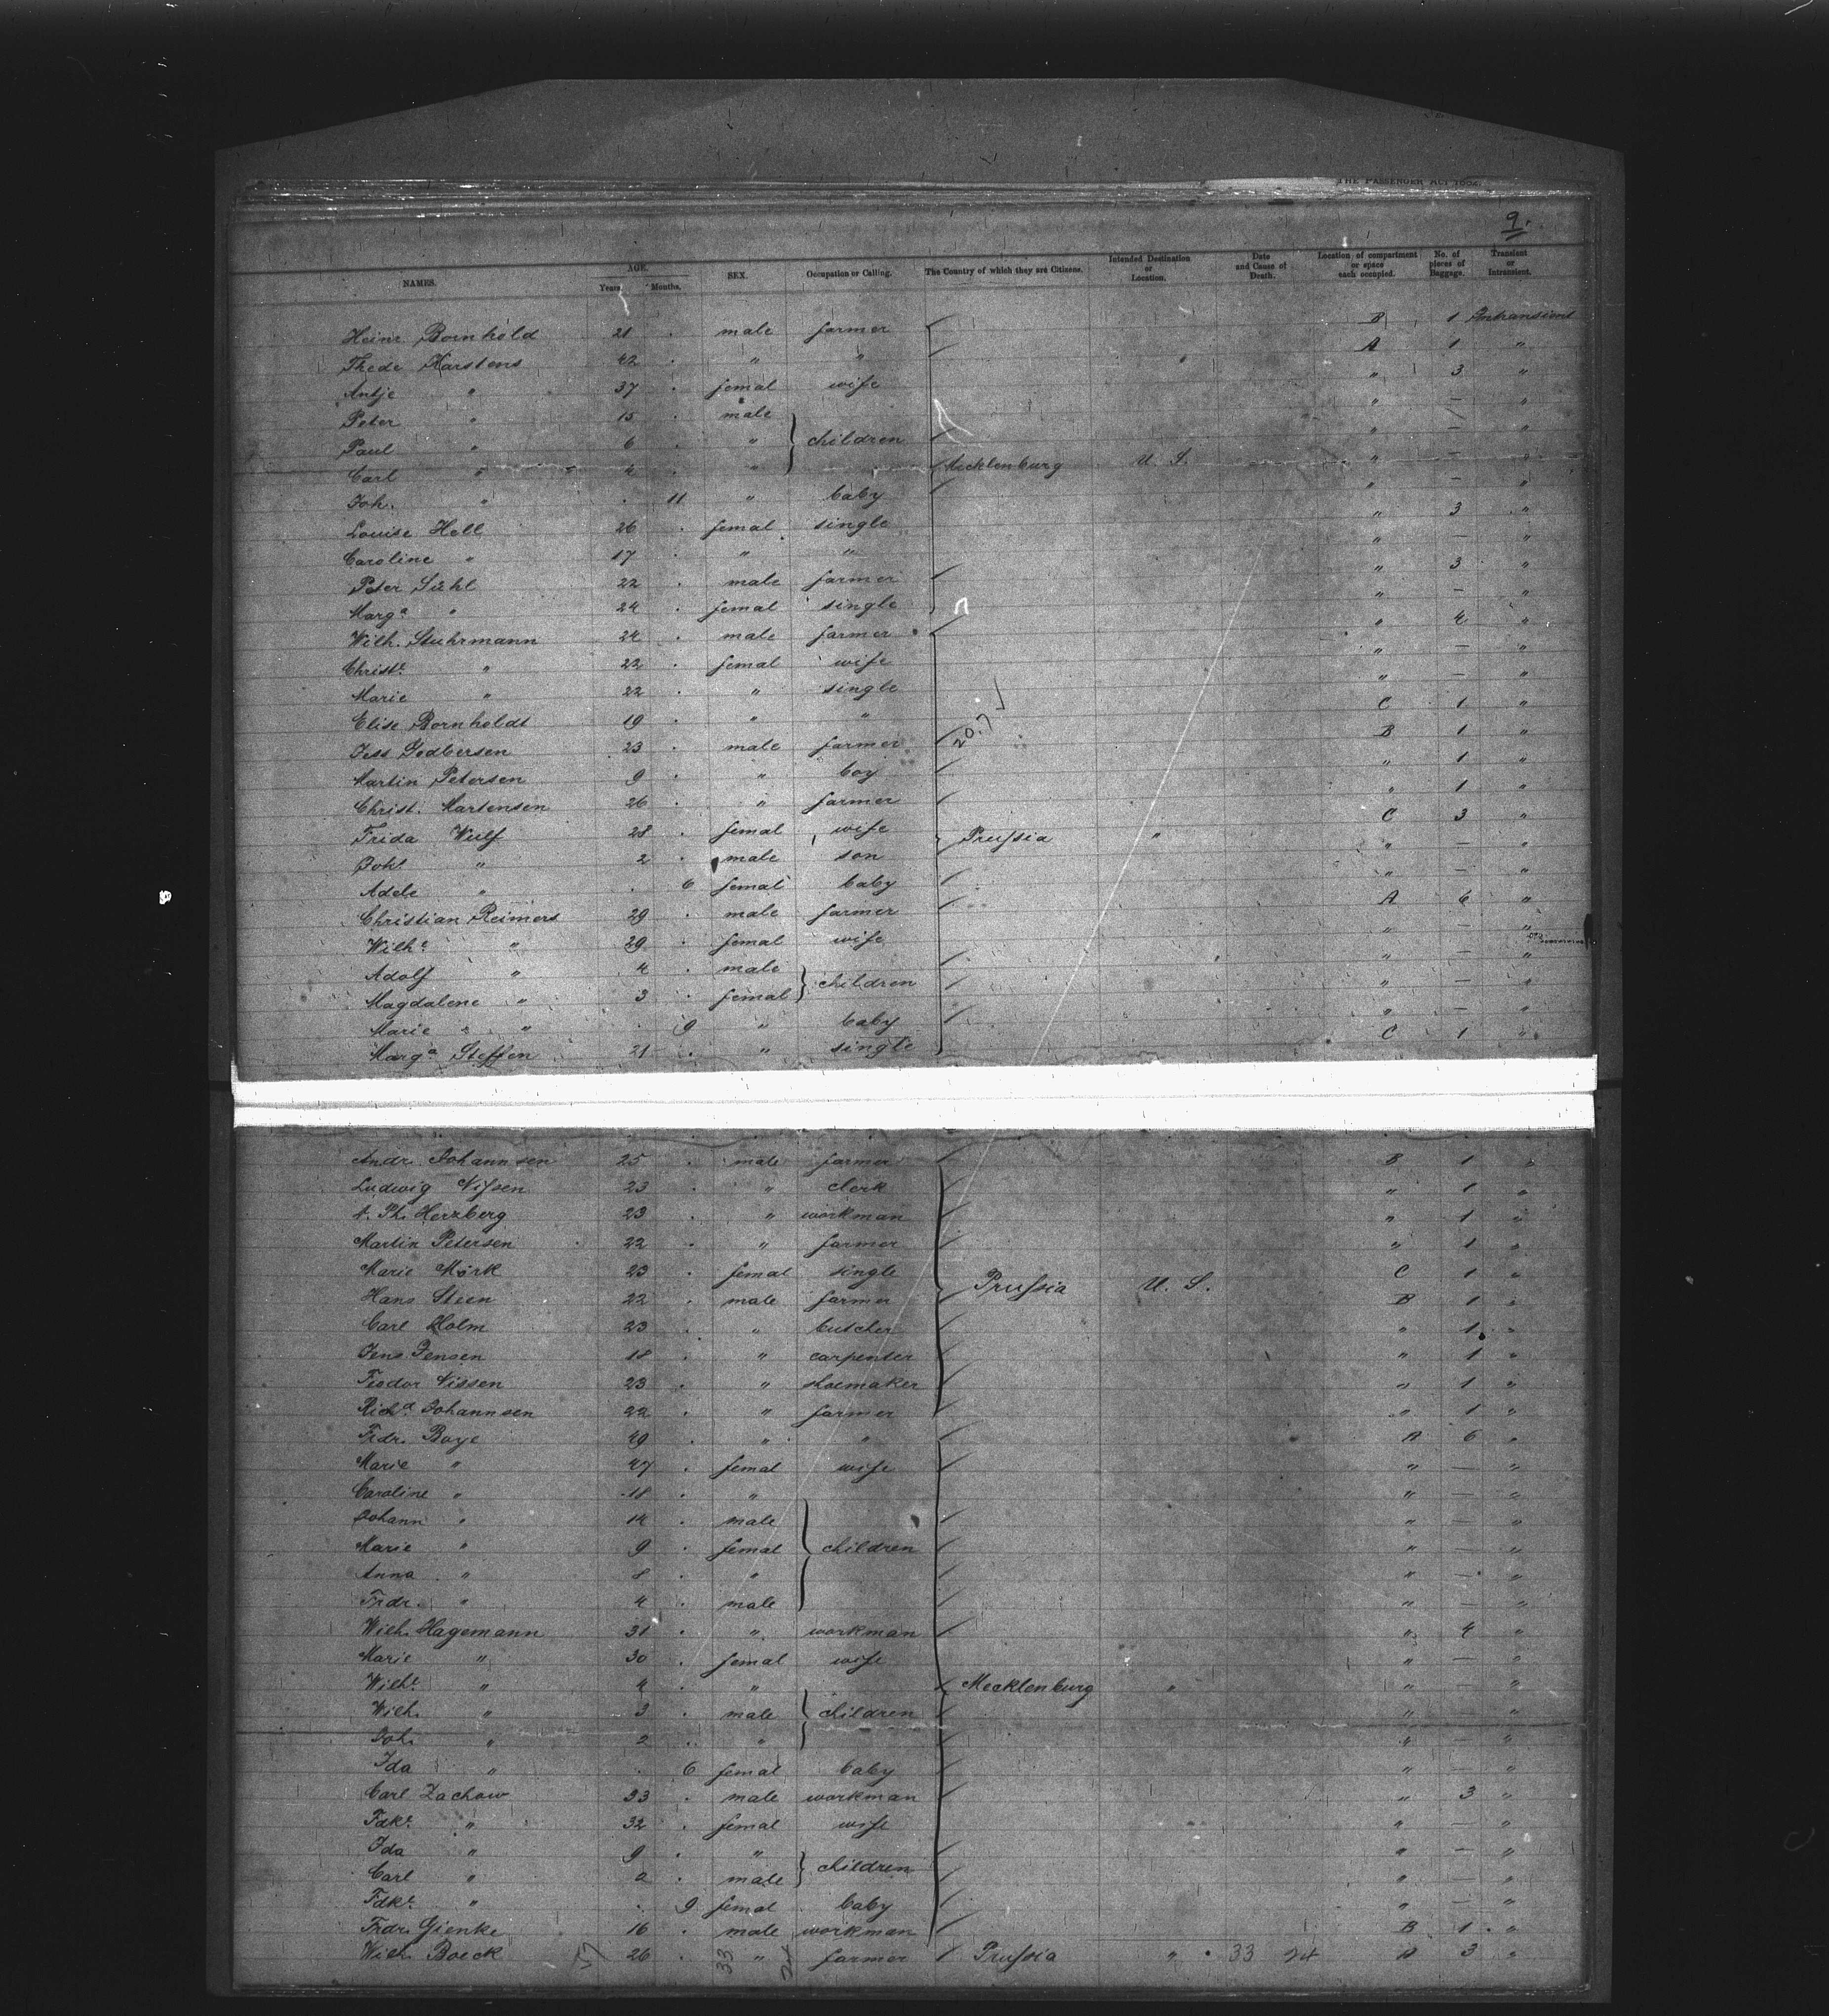 THE PASSENGER ACT 1882.
9.
NAMES. AGE. Years. Months. SEX. Occupation or Calling. The Country of which they are Citizens. Intended Destination or Location. Date and Cause of Death. Location of compartment or space each occupied. No. of pieces of Baggage. Transient or Intransient.
Heinr. Bornhold 21 . male farmer B 1 Intransient
Thede Karstens 42 . " " A 1 "
Antje " 37 . femal wife " 3 "
Peter " 15 . male " — "
Paul " 6 . " children " — "
Carl " 4 . " Mecklenburg U. S. " — "
Joh. " . 11 " baby " — "
Louise Holl 26 . femal single " 3 "
Caroline " 17 . " " " — "
Peter Suhl 22 . male farmer " 3 "
Marga " 24 . femal single " — "
Wilh. Stuhrmann 24 . male farmer " 4 "
Christe " 22 . femal wife " — "
Marie " 22 . " single " — "
Elise Bornholdt 19 . " " C 1 "
Jess Godbersen 23 . male farmer 20.7 B 1 "
Martin Petersen 9 . " boy " 1 "
Christ. Martensen 26 . " farmer " 1 "
Frida Wulf 28 . femal wife Prussia " C 3 "
Johs " 2 . male son " — "
Adele " . 6 femal baby " — "
Christian Reimers 29 . male farmer A 6 "
Wilhe " 29 . femal wife " — "
Adolf " 4 . male " — "
Magdalene " 3 . femal children " — "
Marie " . 9 " baby " — "
Marga Steffen 21 . " single C 1 "
Andr. Johannsen 25 . male farmer B 1 "
Ludwig Nissen 23 . " clerk " 1 "
Ph. Herzberg 23 . " workman " 1 "
Martin Petersen 22 . " farmer " 1 "
Marie Mörk 23 . femal single C 1 "
Hans Steen 22 . male farmer Prussia U. S. B 1 "
Carl Holm 23 . " butcher " 1 "
Jens Jensen 18 . " carpenter " 1 "
Teodor Nissen 23 . " shoemaker " 1 "
Richd Johannsen 22 . " farmer " 1 "
Frdr. Boye 49 . " " A 6 "
Marie " 47 . femal wife " — "
Caroline " 18 . " " — "
Johann " 14 . male " — "
Marie " 9 . femal children " — "
Anna " 8 . " " — "
Frdr. " 4 . male " — "
Wilh. Hagemann 31 . " workman " 4 "
Marie " 30 . femal wife " — "
Wilhe " 4 . " Mecklenburg " " — "
Wilh. " 3 . male children " — "
Joh. " 2 . " " — "
Ida " . 6 femal baby " — "
Carl Zachow 33 . male workman " 3 "
Fdke " 32 . femal wife " — "
Ida " 9 . " " — "
Carl " 2 . male children " — "
Fdke " . 9 femal baby " — "
Frdr. Gienke 16 . male workman B 1 "
Wilh. Boeck 57 26 . 33 " 24 farmer Prussia " 33 24 B 3 "